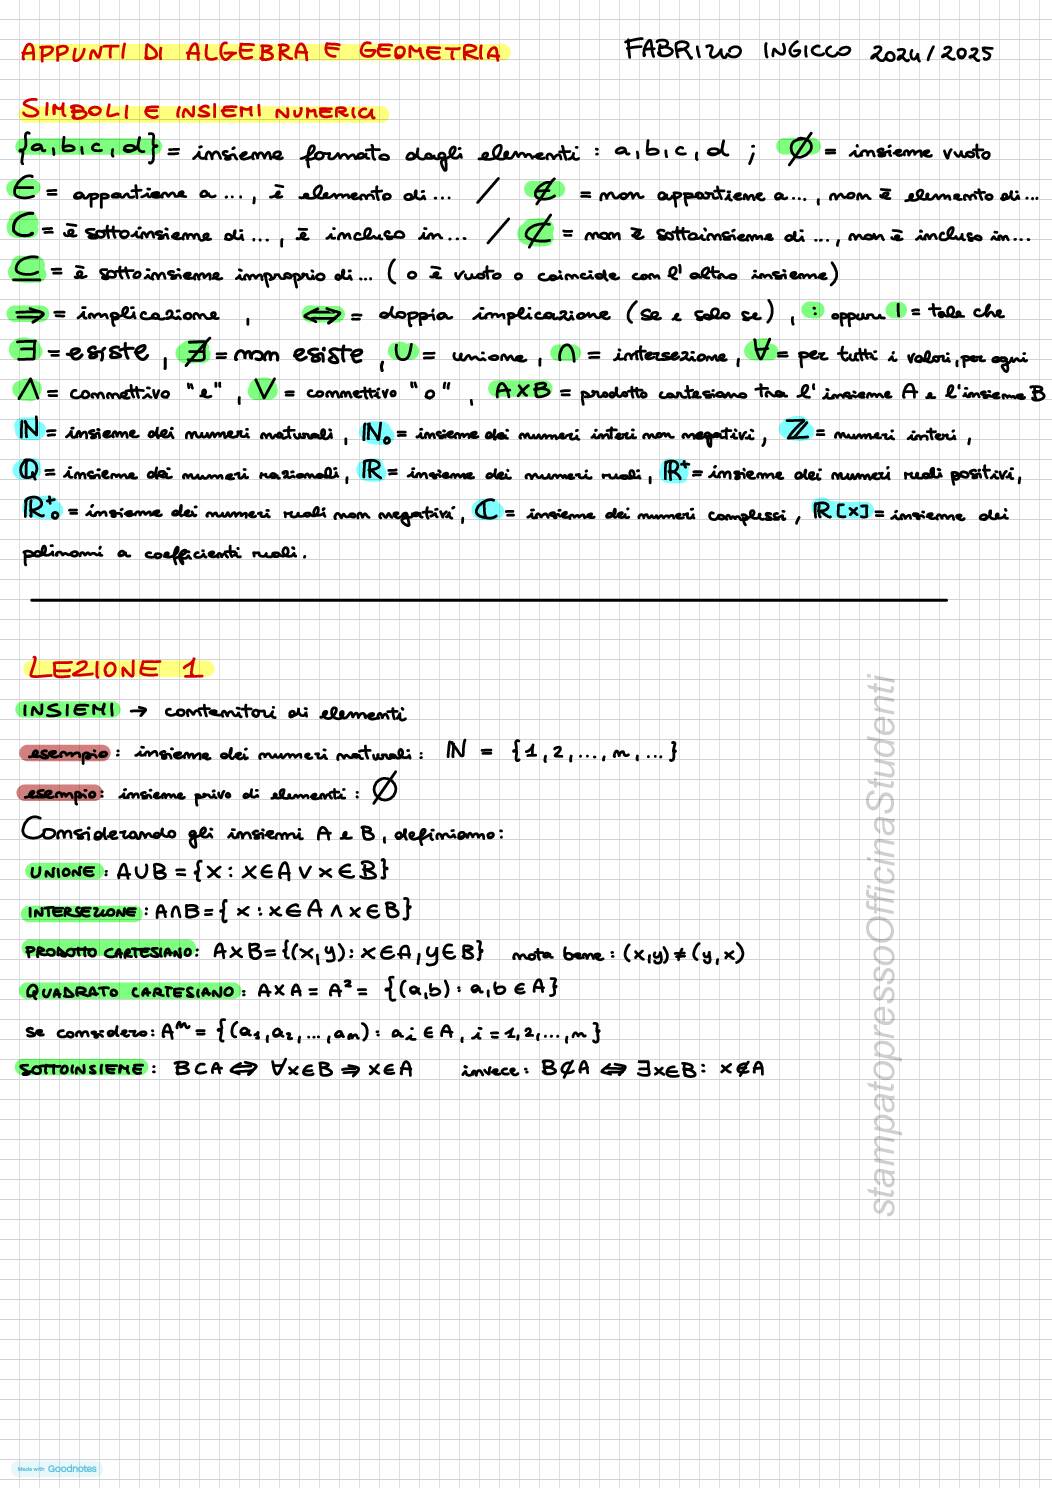 APPUNTI DI ALGEBRA E GEOMETRIA FABRIZIO INGICCO 2024/2025
SIMBOLI E INSIEMI NUMERICI
{a,b,c,d} = insieme formato dagli elementi: a,b,c,d ; ∅ = insieme vuoto
∈ = appartiene a ..., è elemento di ... / ∉ = non appartiene a..., non è elemento di...
⊂ = è sottoinsieme di ..., è incluso in... / ⊄ = non è sottoinsieme di ..., non è incluso in...
⊆ = è sottoinsieme improprio di... (o è vuoto o coincide con l'altro insieme)
⇒ = implicazione , ⇔ = doppia implicazione (se e solo se), : oppure | = tale che
∃ = esiste, ∄ = non esiste, ∪ = unione, ∩ = intersezione, ∀ = per tutti i valori, per ogni
∧ = connettivo "e", ∨ = connettivo "o", A×B = prodotto cartesiano tra l'insieme A e l'insieme B
ℕ = insieme dei numeri naturali, ℕ₀ = insieme dei numeri interi non negativi, ℤ = numeri interi,
ℚ = insieme dei numeri razionali, ℝ = insieme dei numeri reali, ℝ⁺ = insieme dei numeri reali positivi,
ℝ⁺₀ = insieme dei numeri reali non negativi, ℂ = insieme dei numeri complessi, ℝ[x] = insieme dei
polinomi a coefficienti reali.
LEZIONE 1
INSIEMI → contenitori di elementi
esempio: insieme dei numeri naturali: ℕ = {1,2,...,n,...}
esempio: insieme privo di elementi: ∅
Considerando gli insiemi A e B, definiamo:
UNIONE: A∪B = {x : x∈A ∨ x∈B}
INTERSEZIONE: A∩B = {x : x∈A ∧ x∈B}
PRODOTTO CARTESIANO: A×B = {(x,y): x∈A, y∈B} nota bene: (x,y) ≠ (y,x)
QUADRATO CARTESIANO: A×A = A² = {(a,b) : a,b ∈ A}
se considero: Aⁿ = {(a₁,a₂,...,aₙ) : aᵢ ∈ A, i = 1,2,...,n}
SOTTOINSIEME: B⊂A ⇔ ∀x∈B ⇒ x∈A invece: B⊄A ⇔ ∃x∈B: x∉A
stampatopressoOfficinaStudenti
Made with Goodnotes